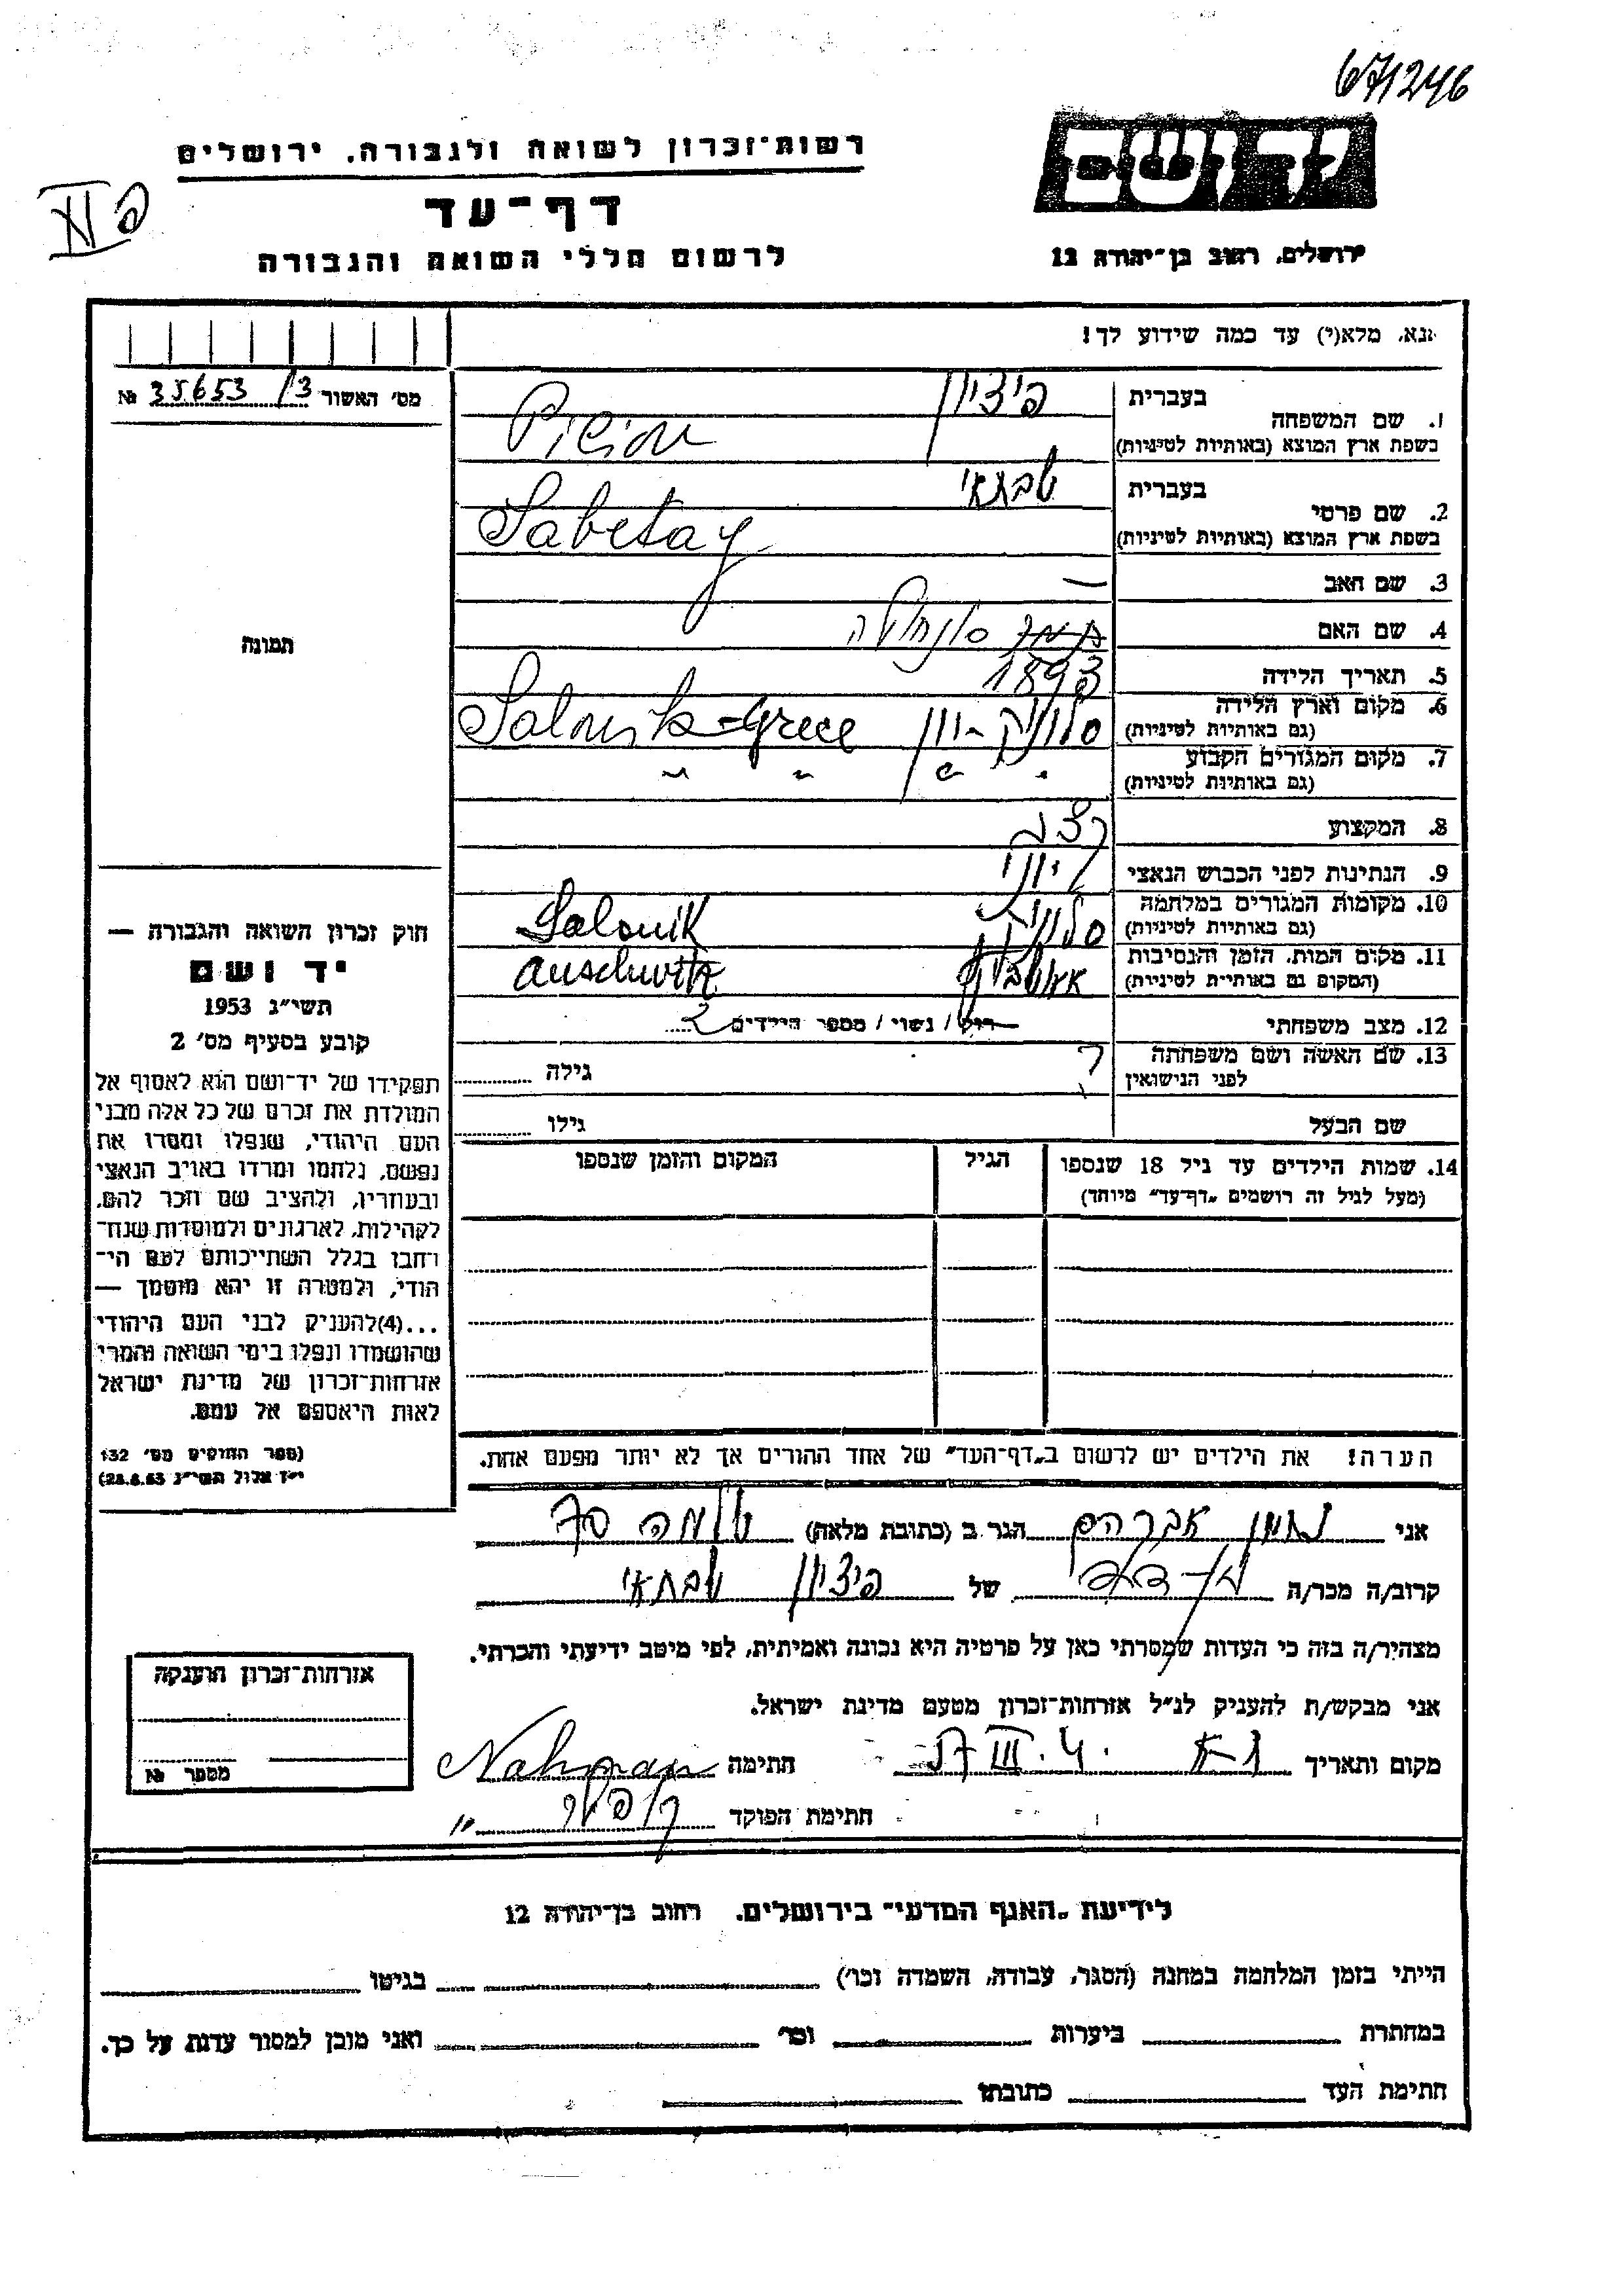 671246
רשות־זכרון לשואה ולגבורה, ירושלים
יד ושם
דף־עד
לרשום חללי השואה והגבורה
ירושלים, רחוב בן־יהודה 12
נא, מלא(י) עד כמה שידוע לך!
מס׳ האשור 35653/3 №
1. שם המשפחה
בעברית פיציון
בשפת ארץ המוצא (באותיות לטיניות)
2. שם פרטי
בעברית שבתאי
בשפת ארץ המוצא (באותיות לטיניות) Sabetay
3. שם האב —
4. שם האם
5. תאריך הלידה 1893
6. מקום וארץ הלידה סלוניק-יוון Salonik-Grece
(גם באותיות לטיניות)
7. מקום המגורים הקבוע " "
(גם באותיות לטיניות)
8. המקצוע
9. הנתינות לפני הכבוש הנאצי יווני
10. מקומות המגורים במלחמה סלוניק Salonik
(גם באותיות לטיניות)
11. מקום המות, הזמן והנסיבות אאושביץ Auschwitz
(המקום גם באותיות לטיניות)
12. מצב משפחתי רווק / נשוי / מספר הילדים 2
13. שם האשה ושם משפחתה ? גילה
לפני הנישואין
שם הבעל גילו
14. שמות הילדים עד גיל 18 שנספו הגיל המקום והזמן שנספו
(מעל לגיל זה רושמים „דף־עד” מיוחד)
הערה! את הילדים יש לרשום ב„דף־העד” של אחד ההורים אך לא יותר מפעם אחת.
תמונה
חוק זכרון השואה והגבורה —
יד ושם
תשי״ג 1953
קובע בסעיף מס׳ 2
תפקידו של יד־ושם הוא לאסוף אל
המולדת את זכרם של כל אלה מבני
העם היהודי, שנפלו ומסרו את
נפשם, נלחמו ומרדו באויב הנאצי
ובעוזריו, ולהציב שם וזכר להם,
לקהילות, לארגונים ולמוסדות שנח־
רחבו בגלל השתייכותם לעם הי־
הודי, ולמטרה זו יהא מוסמך —
...(4)להעניק לבני העם היהודי
שהושמדו ונפלו בימי השואה והמרי
אזרחות־זכרון של מדינת ישראל
לאות היאספם אל עמם.
(ספר החוקים מס׳ 132
י״ז אלול תשי״ג 28.8.53)
אני נחמן אברהם הגר ב (כתובת מלאה) שלמה 70
קרוב/ה מכר/ה בן-דוד של פיציון שבתאי
מצהיר/ה בזה כי העדות שמסרתי כאן על פרטיה היא נכונה ואמיתית, לפי מיטב ידיעתי והכרתי.
אני מבקש/ת להעניק לנ״ל אזרחות־זכרון מטעם מדינת ישראל.
מקום ותאריך חתימה Nahman
חתימת הפוקד
אזרחות־זכרון הוענקה
מספר №
לידיעת „האגף המדעי” בירושלים, רחוב בן־יהודה 12
הייתי בזמן המלחמה במחנה (הסגר, עבודה, השמדה וכו׳) בגיטו
במחתרת ביערות וכו׳ ואני מוכן למסור עדות על כך.
חתימת העד כתובתו